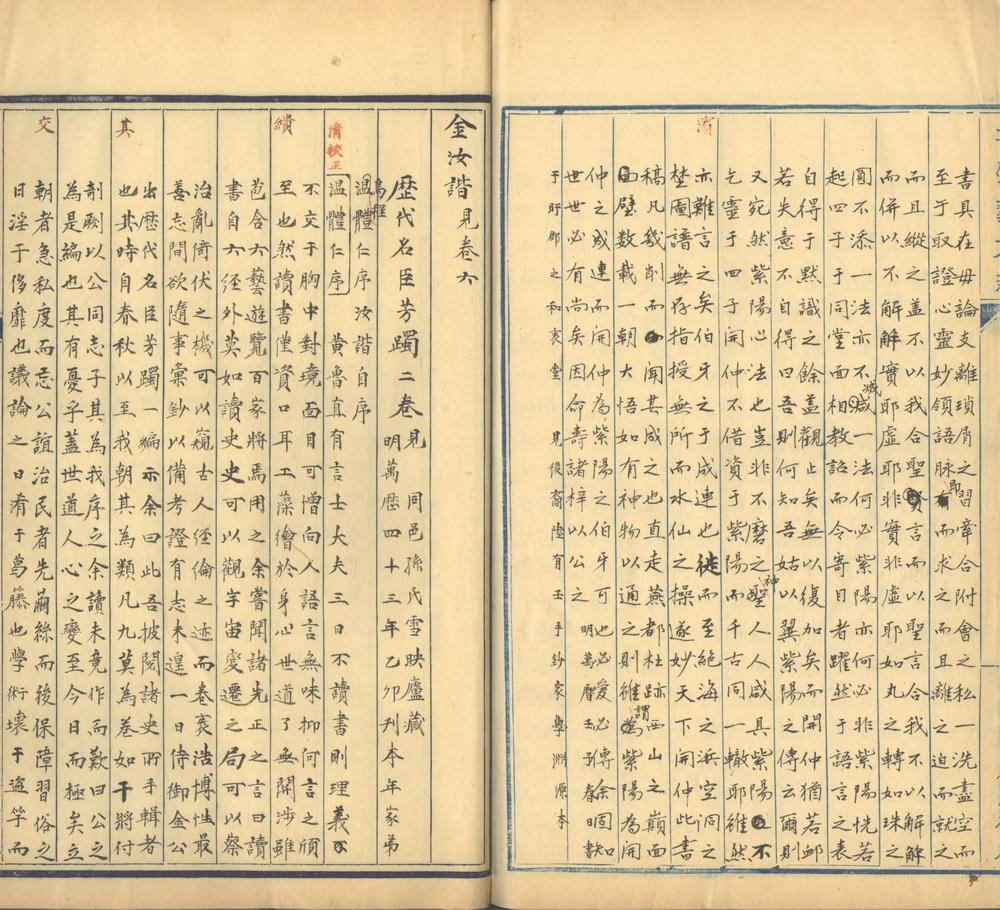 書具在毋論支離瑣屑之習牽合附會之私一洗盡空而
至于取證心靈妙領語脉即有而求之而且離之迫而就之
而且縱之盖不以我合聖賢言而以聖言合我不以解解
而併以不解解實耶虛耶非實非虛耶如丸之轉如珠之
圓不添一法亦不减一法何必紫陽亦何必非紫陽恍若
起四子于同堂面相教詔而令寄目者躍然于語言之表
自得于默識之餘盖觀止矣無以復加矣而開仲猶若卹
若失意不自得曰吾則何知吾姑以翼紫陽之傳云爾則
又宛然紫陽心法也豈非不磨之神聖人人咸具紫陽不
乞靈于四子開仲不借資于紫陽而千古同一轍耶雖然
濱
亦難言之矣伯牙之于成連也徙而至絕海之浜空洞之
埜圖譜無存指授無所而水仙之操遂妙天下開仲此書
稿凡幾削而聞其成之也直走燕都杜跡西山之巔面
面壁数載一朝大悟如有神物以通之則雖謂紫陽為開
仲之成連而開仲為紫陽之伯牙可也必愛必傳余固知
世世必有尚矣因命壽諸梓以公之 明萬曆壬子春日書
于盱郡之和衷堂 見後裔陸有玉手鈔家學淵源本
金汝諧見卷六
歷代名臣芳躅二卷 見同邑孫氏雪映廬藏
明萬歷四十三年乙卯刊本年家弟
烏程
溫體仁序汝諧自序
清校正
溫體仁序 黄魯直有言士大夫三日不讀書則理義不
不交于胸中對鏡面目可憎向人語言無味抑何言之煩
續
至也然讀書僅資口耳工藻繪於身心世道了無關涉雖
苞含六藝遊覽百家將焉用之余嘗聞諸先正之言曰讀
書自六經外莫如讀史史可以觀宇宙變遷之局可以察
治亂倚伏之機可以窺古人經倫之迹而卷袠浩博性最
善忘間欲隨事彙鈔以備考證有志未遑一日侍御金公
出歷代名臣芳躅一編示余曰此吾披閱諸史所手輯者
其
也其時自春秋以至我朝其為類凡九莫為卷如干將付
剞劂以公同志子其為我序之余讀未竟作而歎曰公之
為是編也其有憂乎蓋世道人心之變至今日而極矣立
交
朝者急私度而忘公誼治民者先繭絲而後保障習俗之
日淫于侈靡也議論之日肴于葛藤也學術壞于盜竽而